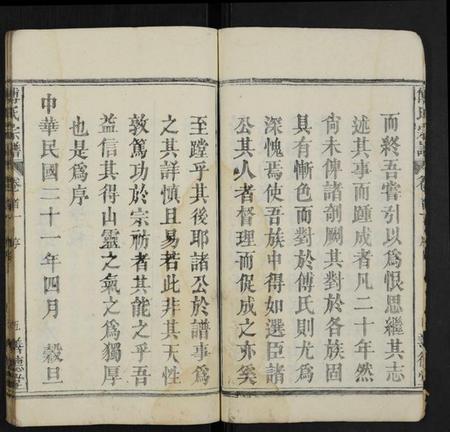 而終吾嘗引以爲恨思繼其志
述其事而踵成者凡二十年然
尙未俾諸剞劂其對於各族固
具有慚色而對於傅氏則尤爲
深愧焉使吾族中得如選臣諸
公其人者督理而促成之亦奚
傅氏宗譜
卷首
序
善德堂
至蹬乎其後耶諸公於譜事爲
之其詳慎且易若此非其天性
敦篤功於宗祊者其能之乎吾
益信其得山靈之氣之爲獨厚
也是爲序
中華民國二十一年四月 穀旦